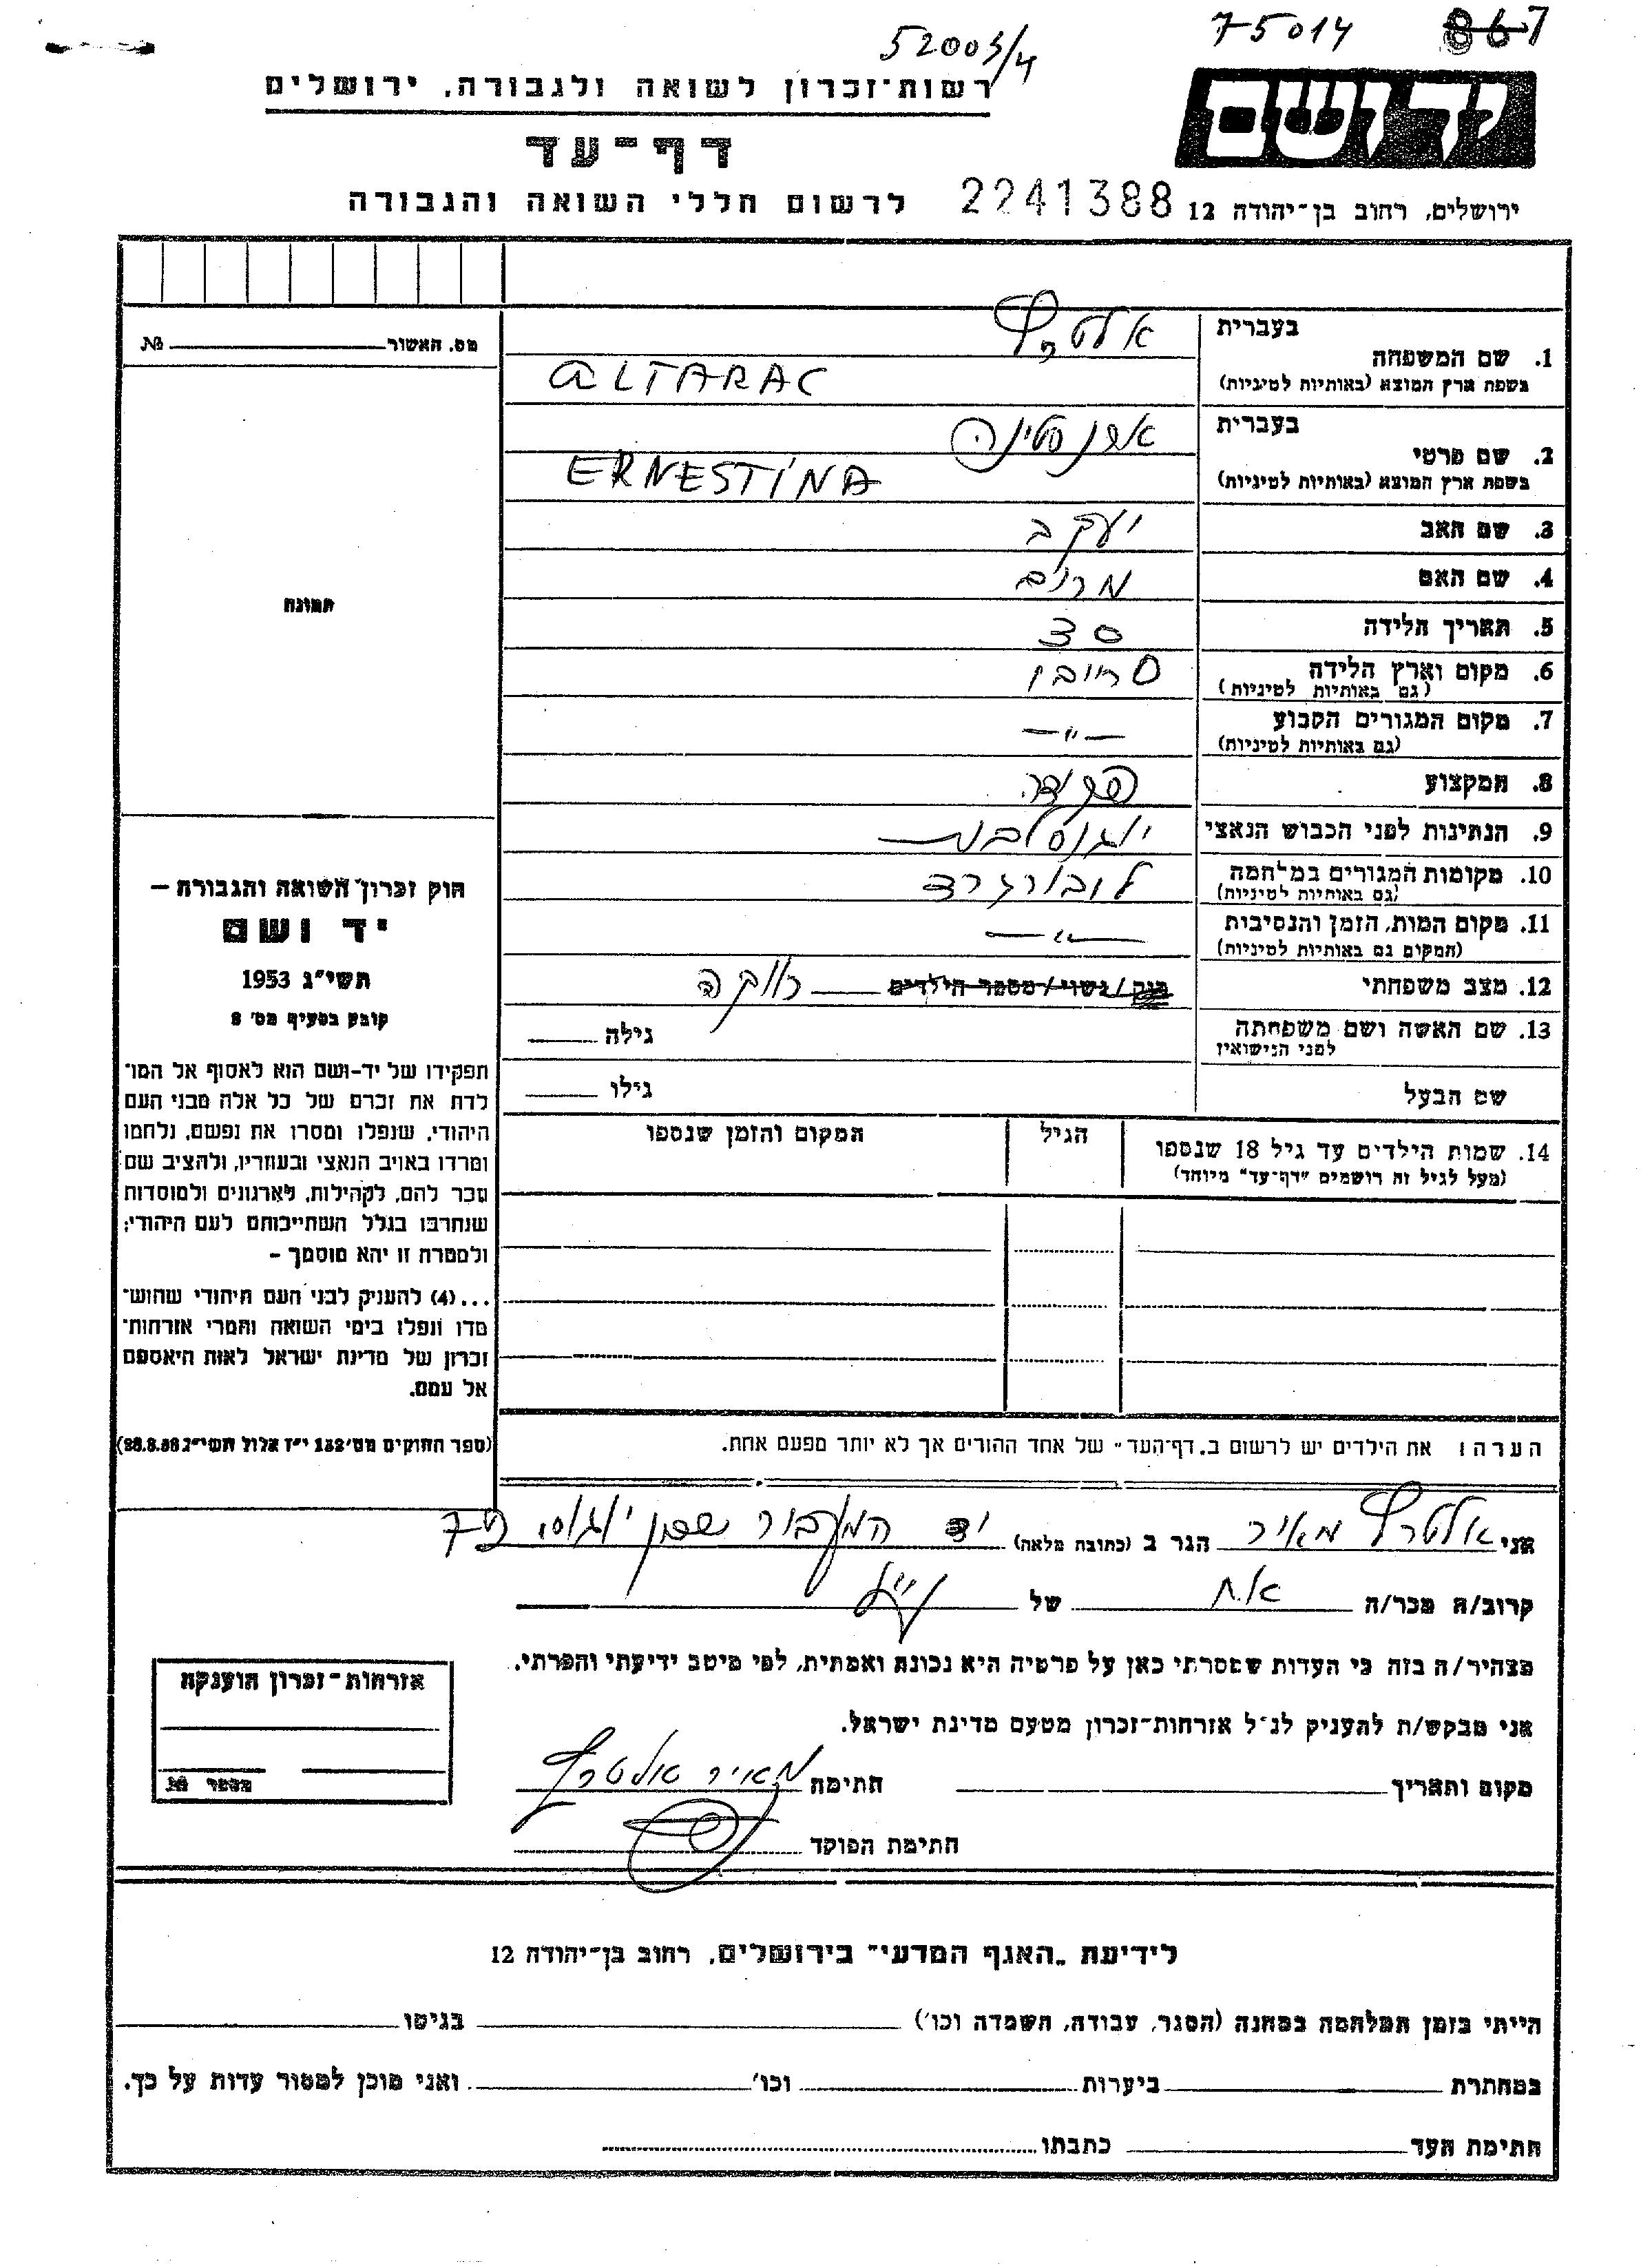 52003/4
75014 867
רשות-זכרון לשואה ולגבורה, ירושלים
יד ושם
דף-עד
לרשום חללי השואה והגבורה 2241388 ירושלים, רחוב בן-יהודה 12
מס. האשור № 
בעברית אלטרץ
1. שם המשפחה
בשפת ארץ המוצא (באותיות לטיניות) ALTARAC
בעברית ארנסטינה
2. שם פרטי
בשפת ארץ המוצא (באותיות לטיניות) ERNESTINA
3. שם האב יעקב
4. שם האם מרים
5. תאריך הלידה
6. מקום וארץ הלידה
(גם באותיות לטיניות)
7. מקום המגורים הקבוע —״—
(גם באותיות לטיניות)
8. המקצוע פקידה
9. הנתינות לפני הכבוש הנאצי יוגוסלבית
10. מקומות המגורים במלחמה
(גם באותיות לטיניות)
11. מקום המות, הזמן והנסיבות —״—
(המקום גם באותיות לטיניות)
12. מצב משפחתי רווק/נשוי/מספר הילדים רווקה
13. שם האשה ושם משפחתה גילה
לפני הנישואין
שם הבעל גילו
14. שמות הילדים עד גיל 18 שנספו הגיל המקום והזמן שנספו
(מעל לגיל זה רושמים "דף-עד" מיוחד)
תמונה
חוק זכרון השואה והגבורה —
יד ושם
תשי״ג 1953
קובע בסעיף מס׳ 2
תפקידו של יד-ושם הוא לאסוף אל המו־
לדת את זכרם של כל אלה מבני העם
היהודי, שנפלו ומסרו את נפשם, נלחמו
ומרדו באויב הנאצי ובעוזריו, ולהציב שם
וזכר להם, לקהילות, לארגונים ולמוסדות
שנחרבו בגלל השתייכותם לעם היהודי;
ולמטרה זו יהא מוסמך –
...(4) להעניק לבני העם היהודי שהוש־
מדו ונפלו בימי השואה והמרי אזרחות־
זכרון של מדינת ישראל לאות היאספם
אל עמם.
(ספר החוקים מס׳ 132 י״ז אלול תשי״ג 28.8.53)
הערה: את הילדים יש לרשום ב„דף-העד״ של אחד ההורים אך לא יותר מפעם אחת.
אני אלטרץ מאיר הגר ב (כתובת מלאה)
קרוב/ה מכר/ה אח של
מצהיר/ה בזה כי העדות שמסרתי כאן על פרטיה היא נכונה ואמתית, לפי מיטב ידיעתי והכרתי.
אני מבקש/ת להעניק לנ״ל אזרחות-זכרון מטעם מדינת ישראל.
מקום ותאריך חתימה מאיר אלטרץ
חתימת הפוקד
אזרחות-זכרון הוענקה
מספר №
לידיעת „האגף המדעי״ בירושלים, רחוב בן-יהודה 12
הייתי בזמן המלחמה במחנה (הסגר, עבודה, השמדה וכו׳) בגיטו
במחתרת ביערות וכו׳ ואני מוכן למסור עדות על כך.
חתימת העד כתבתו